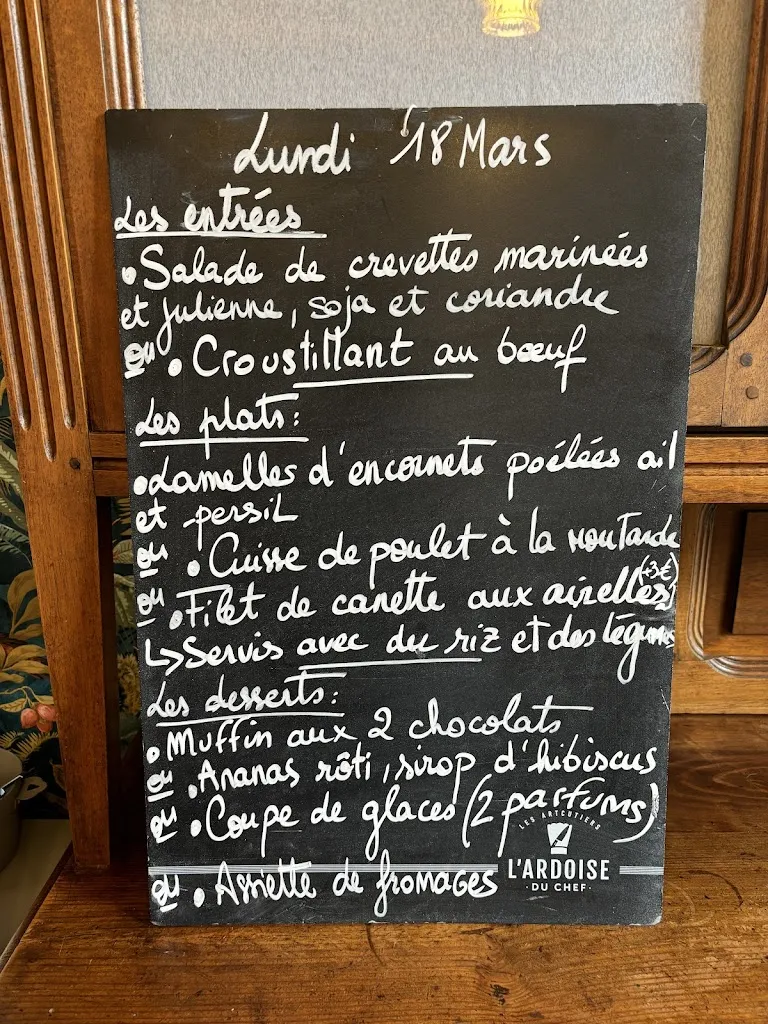 Lundi 18 Mars
Les entrées
• Salade de crevettes marinées
et julienne, soja et coriandre
ou • Croustillant au bœuf
Les plats:
• Lamelles d'encornets poêlées ail
et persil
ou • Cuisse de poulet à la moutarde
ou • Filet de canette aux airelles (+3€)
↳ Servis avec du riz et des légumes
Les desserts:
• Muffin aux 2 chocolats
ou • Ananas rôti, sirop d'hibiscus
ou • Coupe de glaces (2 parfums)
LES ARTCUTIERS
L'ARDOISE
· DU CHEF ·
ou • Assiette de fromages